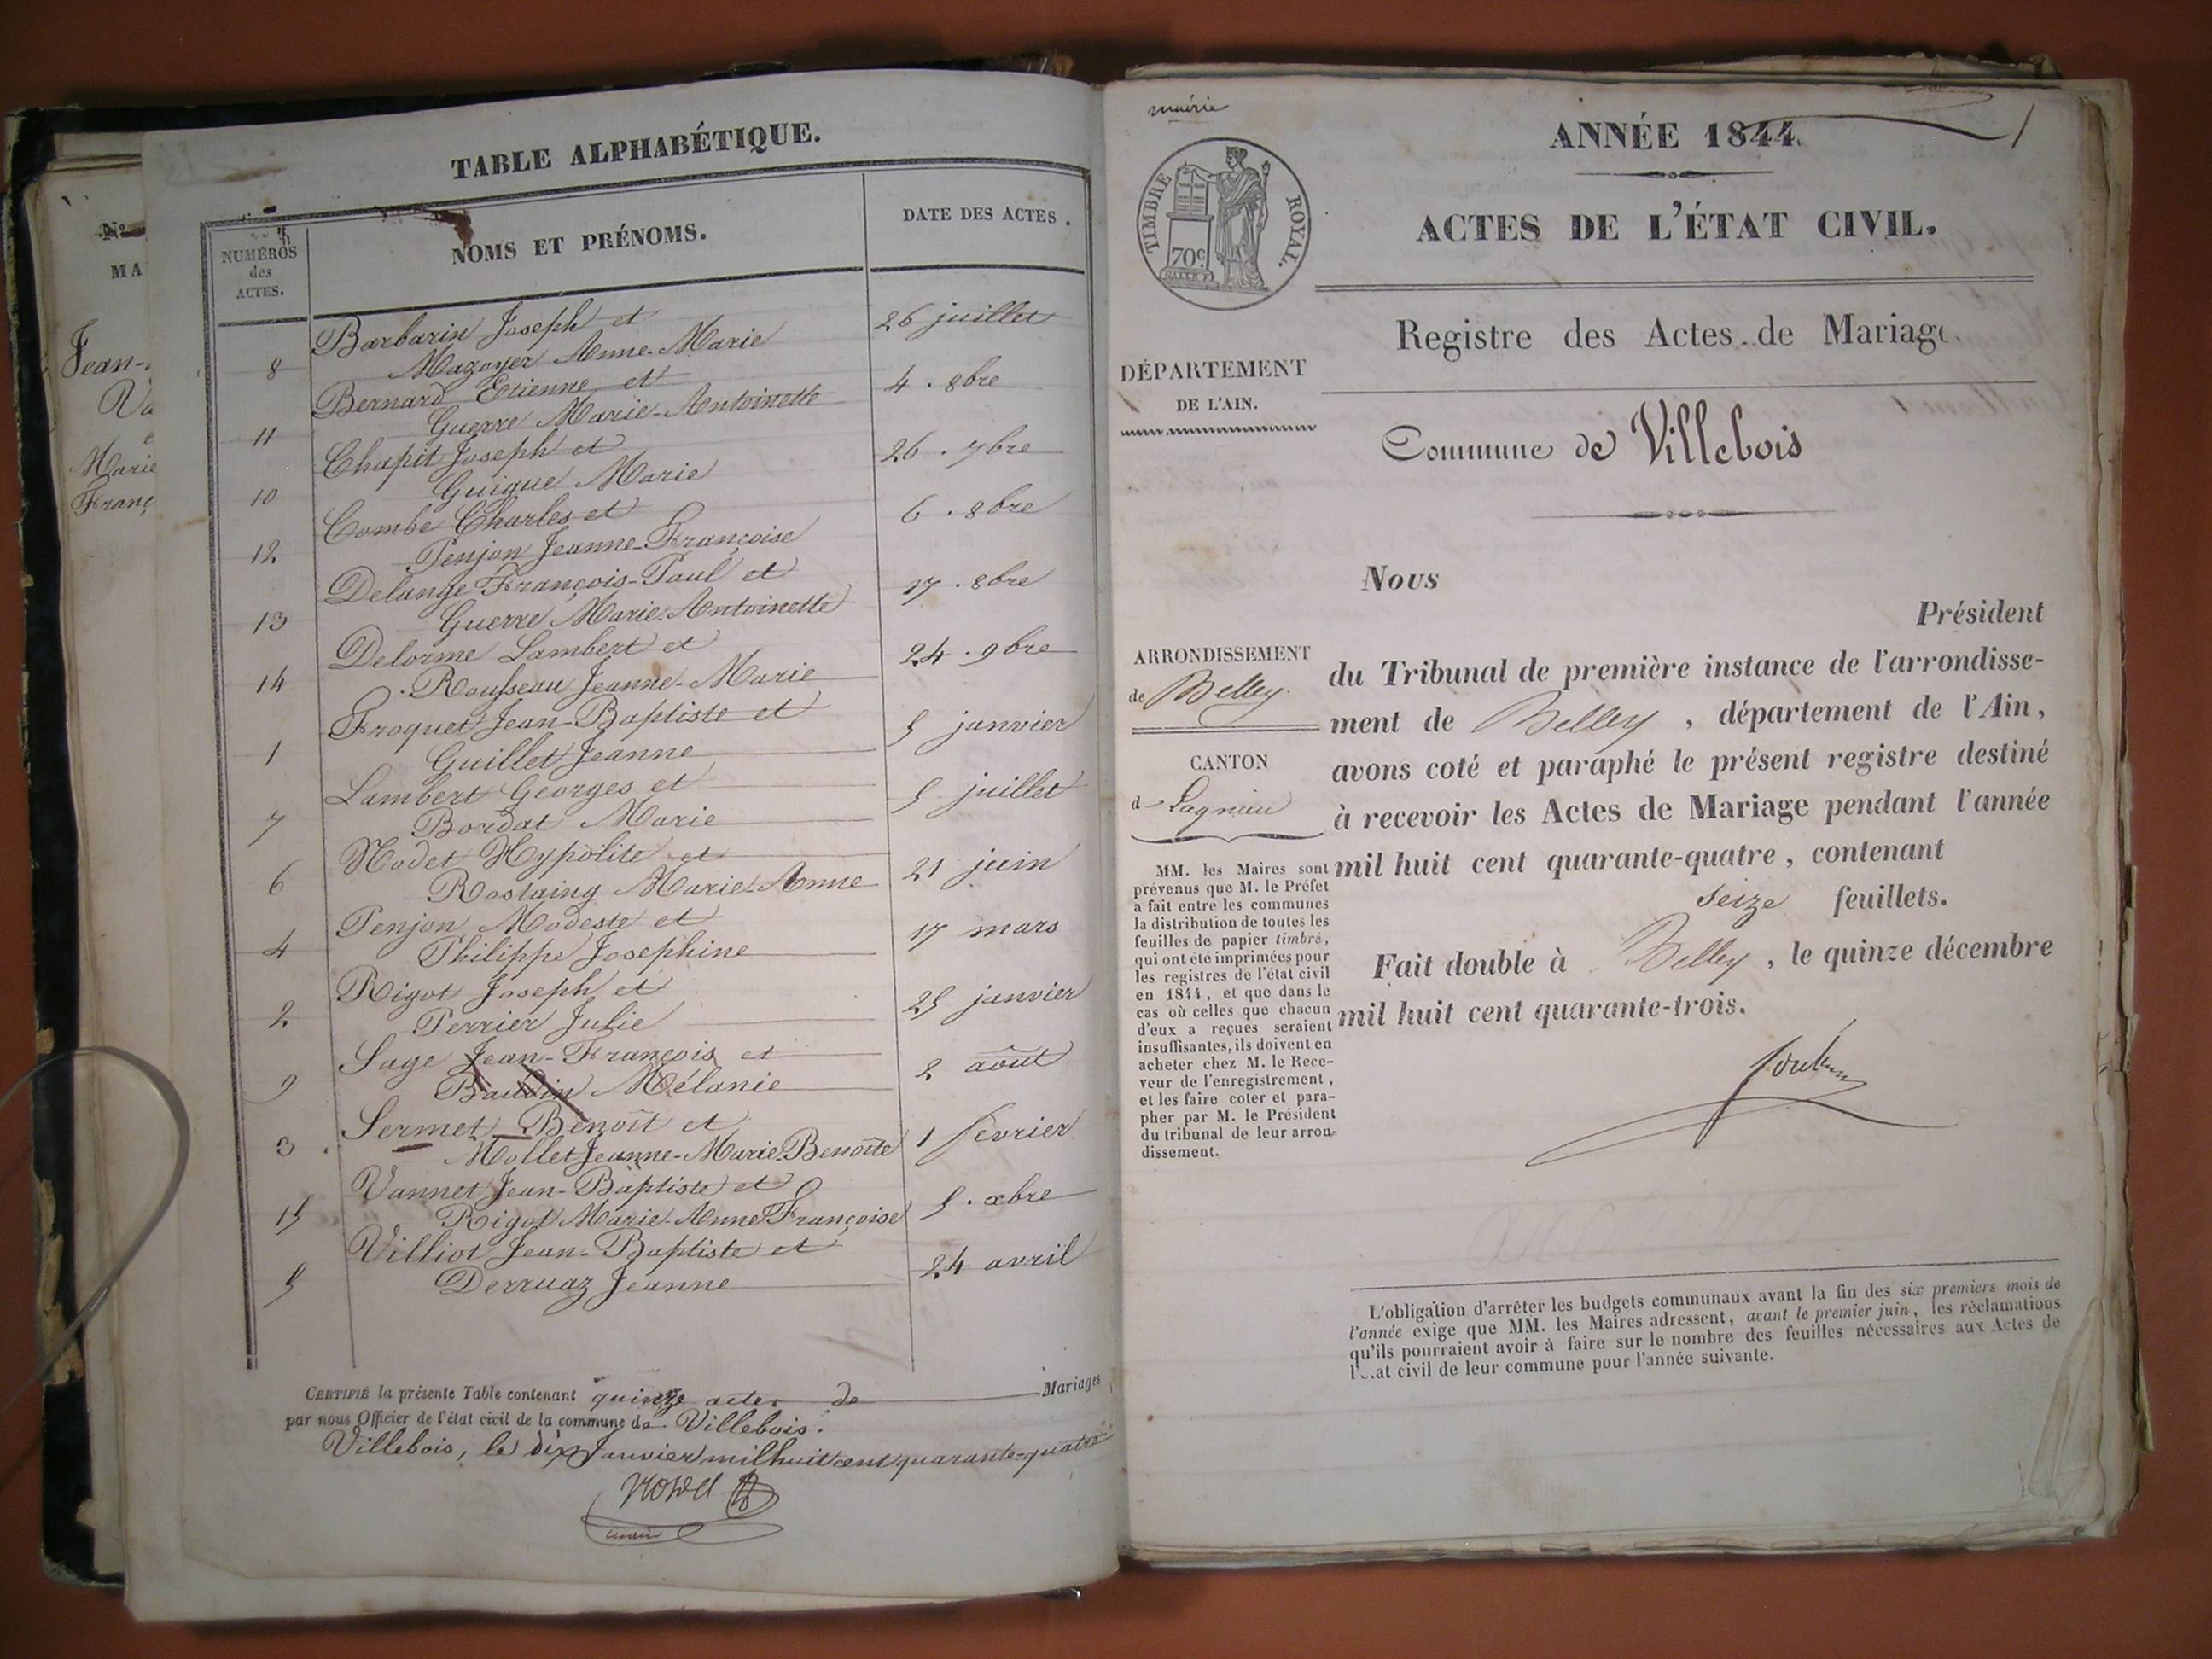 TABLE ALPHABÉTIQUE.
NUMÉROS
des
ACTES.
NOMS ET PRÉNOMS.
DATE DES ACTES.
Barbarin Joseph et
8 Mazoyer Anne-Marie 26 juillet
Bernard Etienne et
11 Guerre Marie-Antoinette 4 . 8bre
Chapit Joseph et
10 Guigue Marie 26 . 7bre
Combe Charles et
12 Penjon Jeanne-Françoise 6 . 8bre
Delange François-Paul et
13 Guerre Marie-Antoinette 17 . 8bre
Delorme Lambert et
14 Rousseau Jeanne-Marie 24 . 9bre
Froquet Jean-Baptiste et
1 Guillet Jeanne 5 janvier
Lambert Georges et
7 Bordat Marie 5 juillet
Nodet Hypolite et
6 Rostaing Marie-Anne 21 juin
Penjon Modeste et
4 Philippe Josephine 17 mars
Rigot Joseph et
2 Perrier Julie 25 janvier
Sage Jean-François et
9 Baudin Mélanie 2 août
Sermet Benoît et
3 Mollet Jeanne-Marie Benoîte 1 février
Vannet Jean-Baptiste et
15 Rigot Marie-Anne Françoise 5 . xbre
Villiot Jean-Baptiste et
5 Derruaz Jeanne 24 avril
CERTIFIÉ la présente Table contenant quinze actes de Mariages
par nous Officier de l'état civil de la commune de Villebois.
Villebois, le dix Janvier mil huit cent quarante-quatre
maire
N°
MA
Jean-
Va
Marie
Franç
mairie
TIMBRE ROYAL.
70c
ANNÉE 1844.
1
ACTES DE L'ÉTAT CIVIL.
Registre des Actes de Mariage.
DÉPARTEMENT
DE L'AIN.
Commune de Villebois
Nous
Président
ARRONDISSEMENT
de Belley.
du Tribunal de première instance de l'arrondisse-
ment de Belley, département de l'Ain,
CANTON
d Lagnieu
avons coté et paraphé le présent registre destiné
à recevoir les Actes de Mariage pendant l'année
mil huit cent quarante-quatre, contenant
seize feuillets.
Fait double à Belley, le quinze décembre
mil huit cent quarante-trois.
MM. les Maires sont
prévenus que M. le Préfet
a fait entre les communes
la distribution de toutes les
feuilles de papier timbré,
qui ont été imprimées pour
les registres de l'état civil
en 1844, et que dans le
cas où celles que chacun
d'eux a reçues seraient
insuffisantes, ils doivent en
acheter chez M. le Rece-
veur de l'enregistrement,
et les faire coter et para-
pher par M. le Président
du tribunal de leur arron-
dissement.
L'obligation d'arrêter les budgets communaux avant la fin des six premiers mois de
l'année exige que MM. les Maires adressent, avant le premier juin, les réclamations
qu'ils pourraient avoir à faire sur le nombre des feuilles nécessaires aux Actes de
l'état civil de leur commune pour l'année suivante.